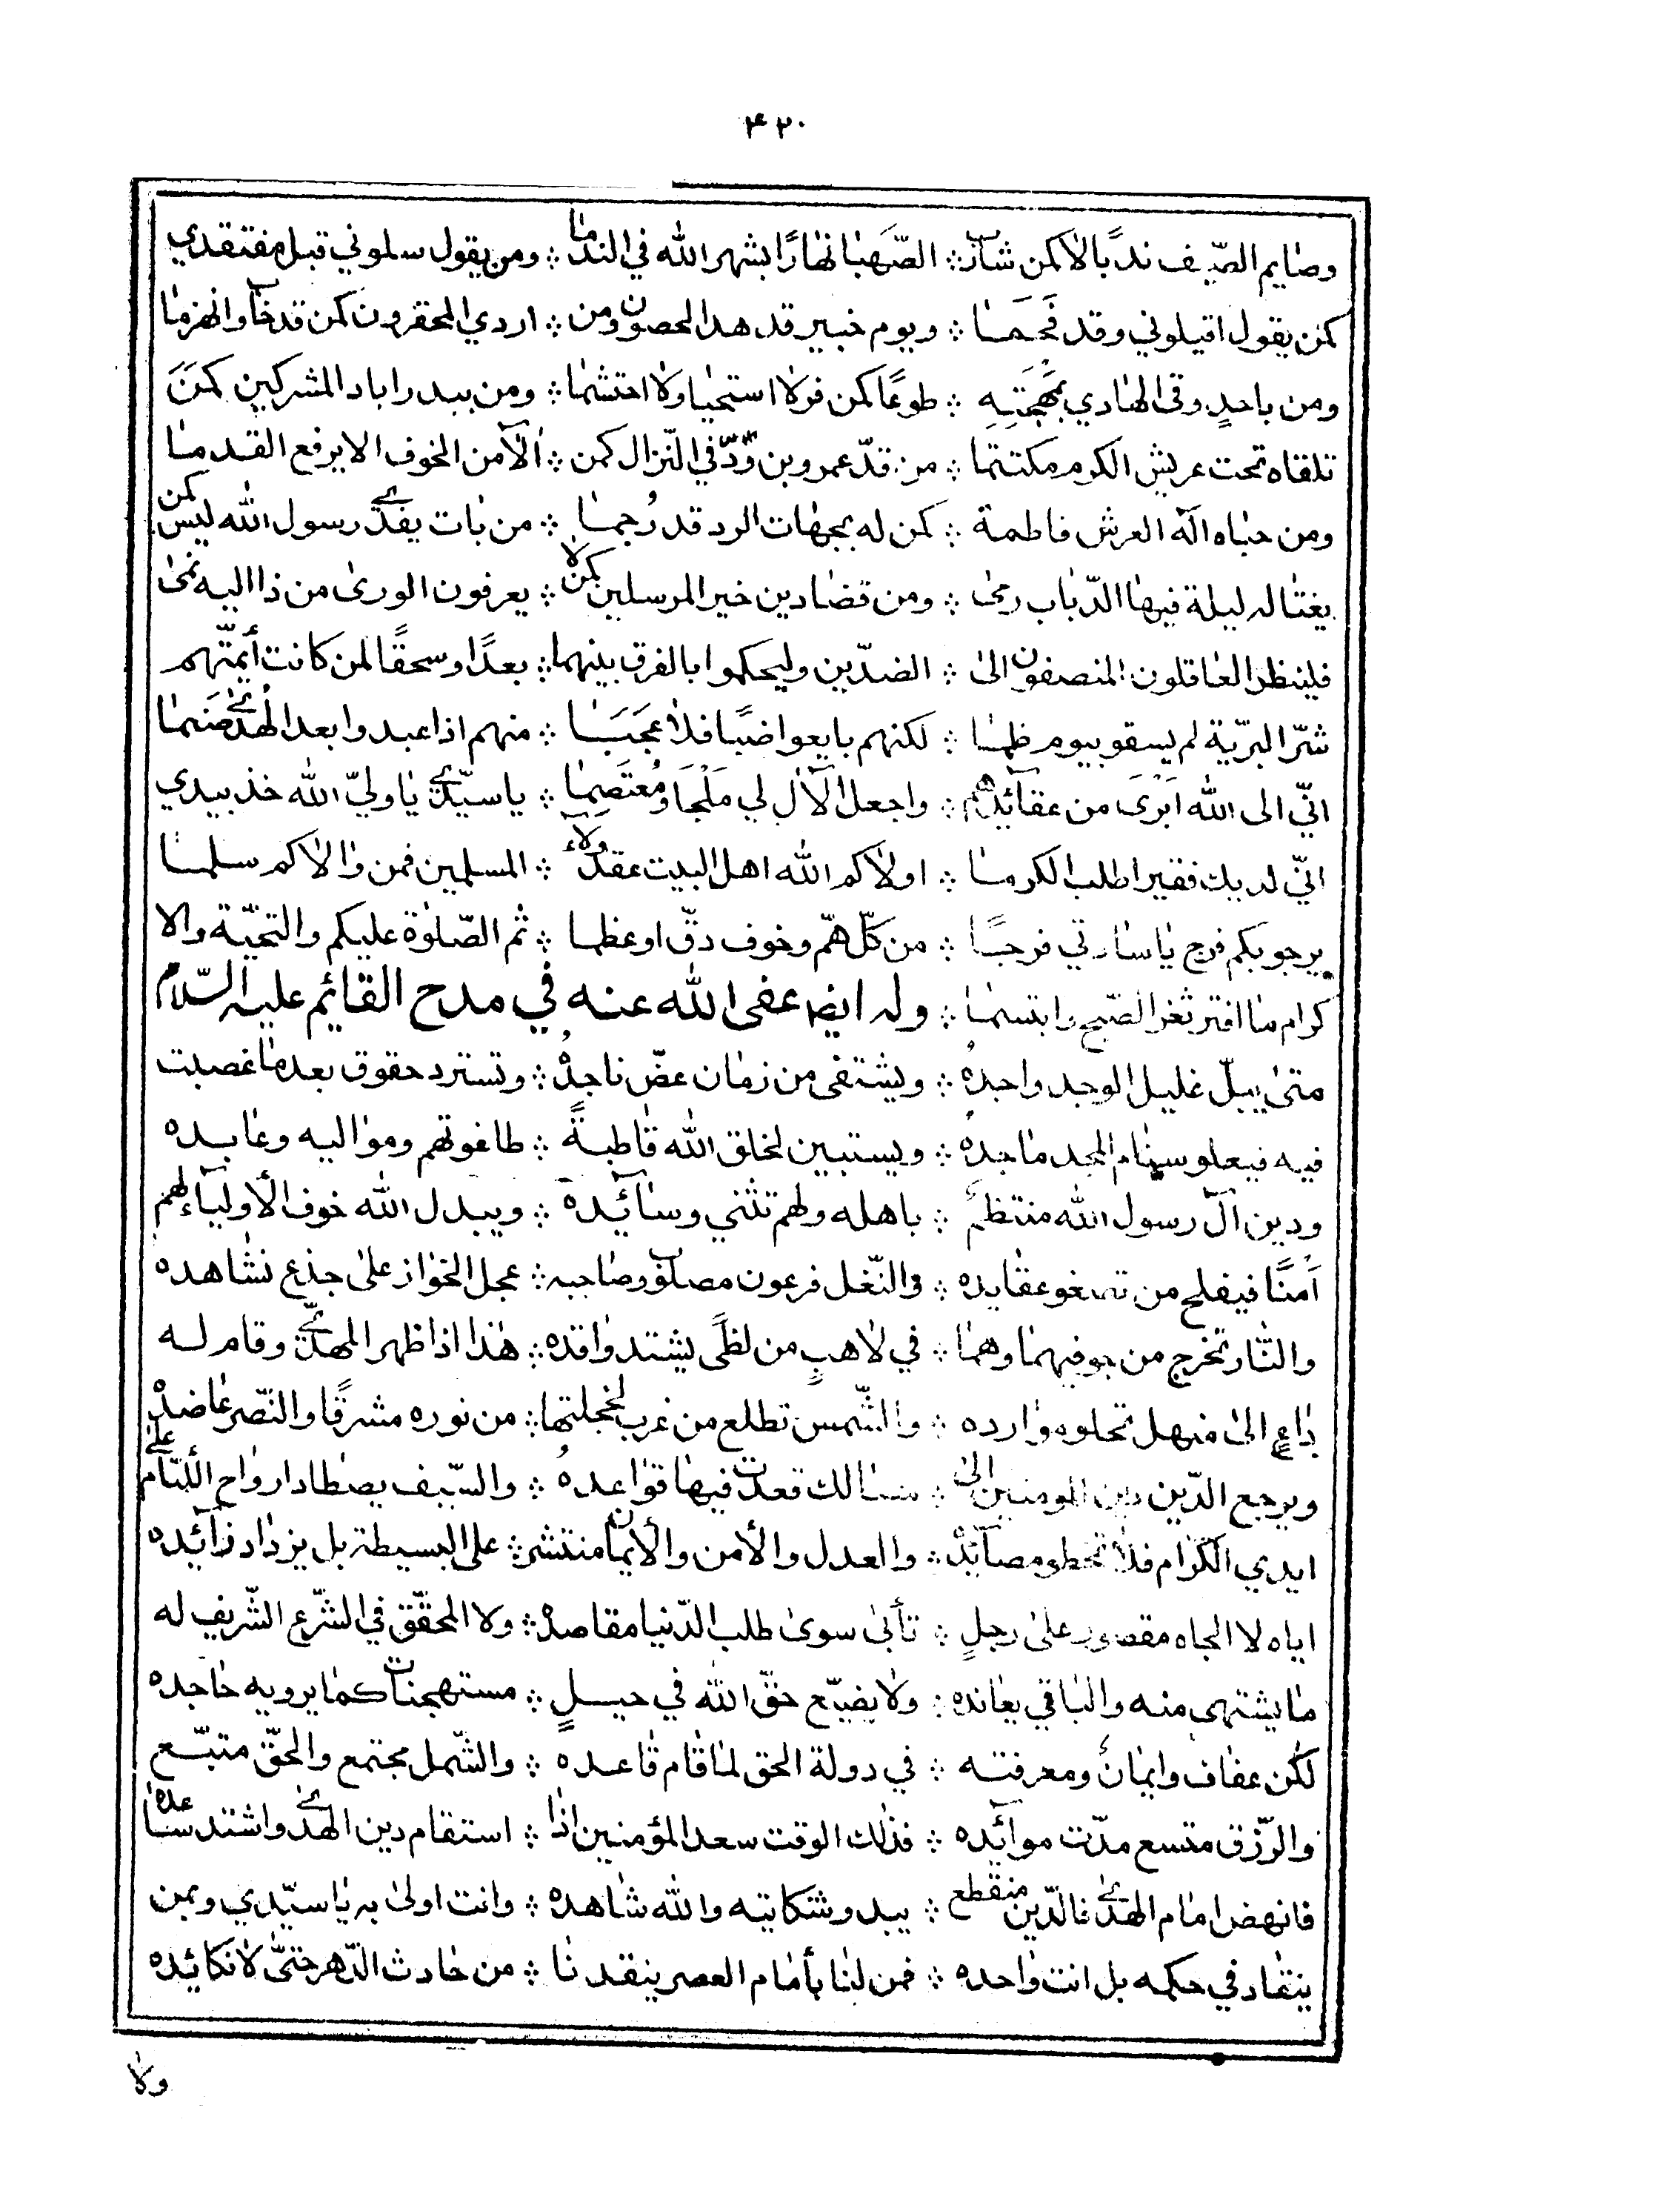 ۴۲۰
وصٰايم الصّيف ندبًا لا كمن شارب ؞ الصَّهَبٰا نهٰارًا بشهر الله في الندمٰا ؞ ومن يقول سلوني قبل مفتقدي
كمن يقول اقيلوني وقد فَحَمَٰا ؞ ويوم خيبر قد هد الحصون ومن ؞ اردي المحقرون كمن قد خٰاب وانهزمٰا
ومن باحدٍ وقى الهٰادي بمُهَجَتِهِ ؞ طوعًا كمن فر لا استحيٰا ولا احتشمٰا ؞ ومن ببدر اباد المشركين كمَنَ
تلقاه تحت عريش الكوم مكتتمٰا ؞ من قدّ عمرو بن ودّ في النّزال كمن ؞ الآمن الخوف الا يرفع القدمٰا
ومن حبٰاه اله العرش فاطمة ؞ كمن له بجهٰات الرد قد رُجمٰا ؞ من بٰات يفدي رسول الله ليس كمن
يغتٰاله ليلة فيهٰا الدّبٰاب رمىٰ ؞ ومن قضٰا دين خير المرسلين كمن لا ؞ يعرفون الورىٰ من ذا اليه نمىٰ
فلينظر العٰاقلون المنصفون الىٰ ؞ الضدّين وليحكموا بالفرق بينهما ؞ بعدًا وسحقًا لمن كانت أيمّتهم
شرّ البريّة لم يسقو بيوم ظمٰا ؞ لكنهم بايعوا ضبًا فلا عَجَبَٰا ؞ منهم اذا عبدوا بعد الهُدىٰ صَنَمٰا
انّي الى الله ابْرَى من عقآئدهم ؞ واجعل الآل لي مَلْجَا ومُعتَصِمٰا ؞ يا سيّدي يٰا وليّ الله خذ بيدي
انّي لديك فقير اطلب الكرمٰا ؞ اولاكم الله اهل البيت عقد ولاء ؞ المسلمين فمن وٰالاكم سلمٰا
يرجو بكم فرج يٰا سٰادتي فرجًٰا ؞ من كلّ همّ وخوف دقّ او عظما ؞ ثم الصّلوٰة عليكم والتحيّة والا
كرام مٰا افتر ثغر الصّبح وابتسمٰا ؞ وله ايضا عفى الله عنه في مدح القٰائم عليه السّلام
متىٰ يبلّ غليل الوجد واجدهُ ؞ ويشتفى من زمٰان عضّ ناجدهُ ؞ وتسترد حقوق بعد مٰا غصبت
فيه فيعلو سنٰام المجد مٰاجدهُ ؞ ويستبين لخلق الله قٰاطبةً ؞ طاغوتهم وموٰاليه وعٰابده
ودين آل رسول الله منتظمٌ ؞ باهله ولهم تثني وسٰآئده ؞ ويبدل الله خوف الأوليآء لهم
أمنًا فيفلح من تصغو عقٰايده ؞ والنّغل فرعون مصلوب وصٰاحبه ؞ عجل الخوٰار علىٰ جذع نشٰاهده
والنّٰار تخرج من جوفيهمٰا وهمٰا ؞ في لاهبٍ من لظًى يشتد وٰاقده ؞ هٰذا اذا ظهر المهديّ وقام له
دٰاعٍ الىٰ منهل تحلو موٰارده ؞ والشّمس تطلع من غرب لخجلتها ؞ من نوره مشرقًا والنّصر عٰاضده
ويرجع الدّين دين المومنين الىٰ ؞ مسالك قعدت فيهٰا قوٰاعدهُ ؞ والسّيف يصطٰاد ارواح اللّئٰام علىٰ
ايدي الكرٰام فلا تخطو مصآئدهُ ؞ والعدل والأمن والأيمٰان منتشر ؞ على البسيطة بل يزدٰاد زآئده
اياه لا الجاه مقصور علىٰ رجلٍ ؞ تأبىٰ سوىٰ طلب الدّنيا مقاصدهُ ؞ ولا المحقّق في الشّرع الشّريف له
مٰا يشتهى منه والبٰاقي يعٰانده ؞ ولا يضيّع حقّ الله في حيلٍ ؞ مستهجنات كمٰا يرويه جٰاحده
لكن عفاف وايمٰان ومعرفته ؞ في دولة الحق لمٰا قٰام قٰاعده ؞ والشّمل مجتمع والحقّ متبّع
والرّزق متسع مدّت موآئده ؞ فذٰلك الوقت سعد المؤمنين اذٰا ؞ استقام دين الهدىٰ واشتد سٰاعده
فانهض امٰام الهدىٰ فالدّين منقطع ؞ يبدو شكايته والله شاهده ؞ وانت اولىٰ به يٰا سيّدي وبمن
ينقٰاد في حكمه بل انت وٰاحده ؞ فمن لنٰا يأمٰام العصر ينقدنٰا ؞ من حٰادث الدّهر حتّىٰ لا نكائده
ولا